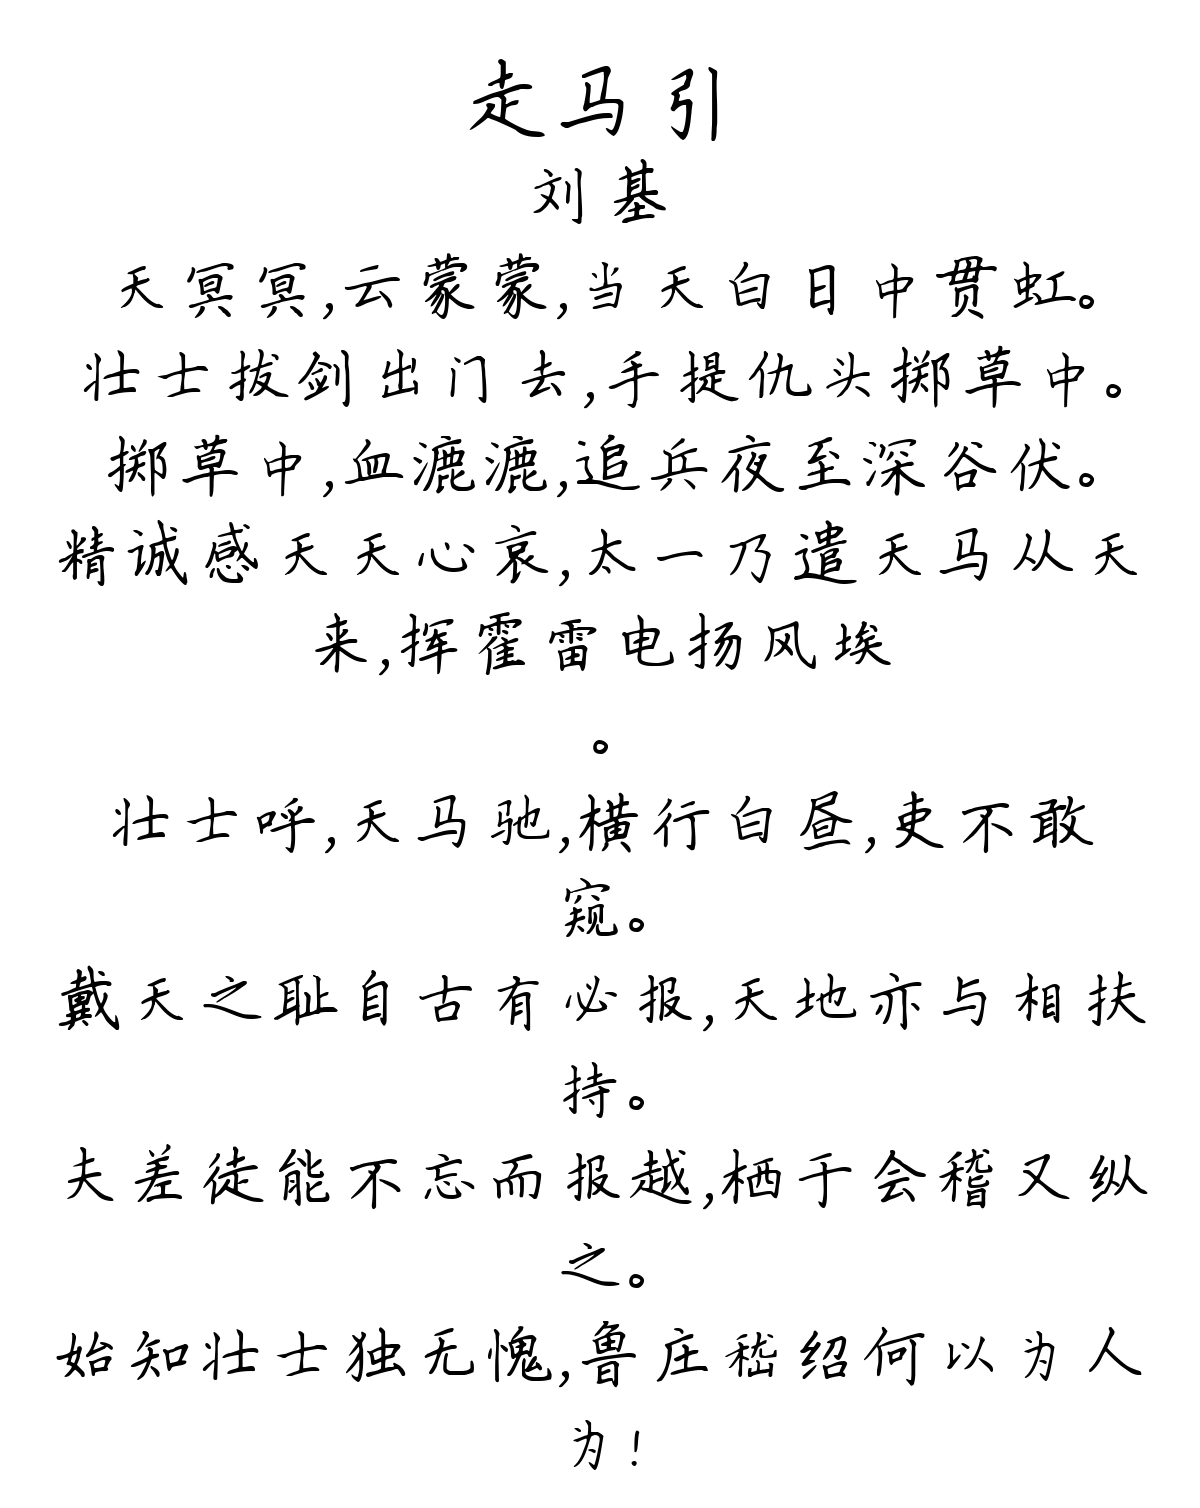 走马引
刘基
天冥冥,云蒙蒙,当天白日中贯虹。
壮士拔剑出门去,手提仇头掷草中。
掷草中,血漉漉,追兵夜至深谷伏。
精诚感天天心哀,太一乃遣天马从天
来,挥霍雷电扬风埃
。
壮士呼,天马驰,横行白昼,吏不敢
窥。
戴天之耻自古有必报,天地亦与相扶
持。
夫差徒能不忘而报越,栖于会稽又纵
之。
始知壮士独无愧,鲁庄嵇绍何以为人
为!